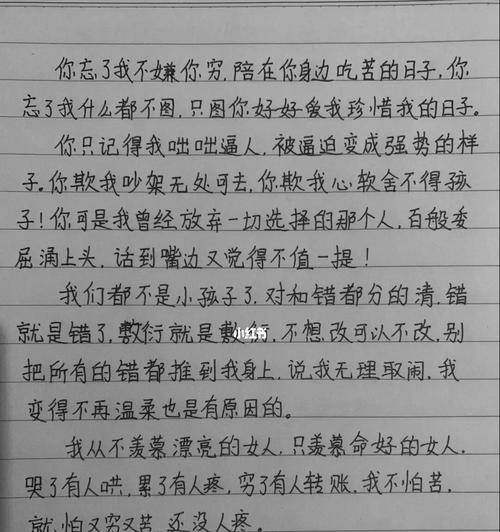 你忘了我不嫌你穷，陪在你身边吃苦的日子，你
忘了我什么都不图，只图你好好爱我珍惜我的日子。
你只记得我咄咄逼人，被逼迫变成强势的样
子。你欺我吵架无处可去，你欺我心软舍不得孩
子！你可是我曾经放弃一切选择的那个人，百般委
屈涌上头，话到嘴边又觉得不值一提！
我们都不是小孩子了，对和错都分的清，错
就是错了，敷衍就是敷衍，不想改可以不改，别
小红书
把所有的错都推到我身上，说我无理取闹，我
变得不再温柔也是有原因的。
我从不羡慕漂亮的女人，只羡慕命好的女人，
哭了有人哄，累了有人疼，穷了有人转账，我不怕苦，
就怕又穷又苦，还没人疼。